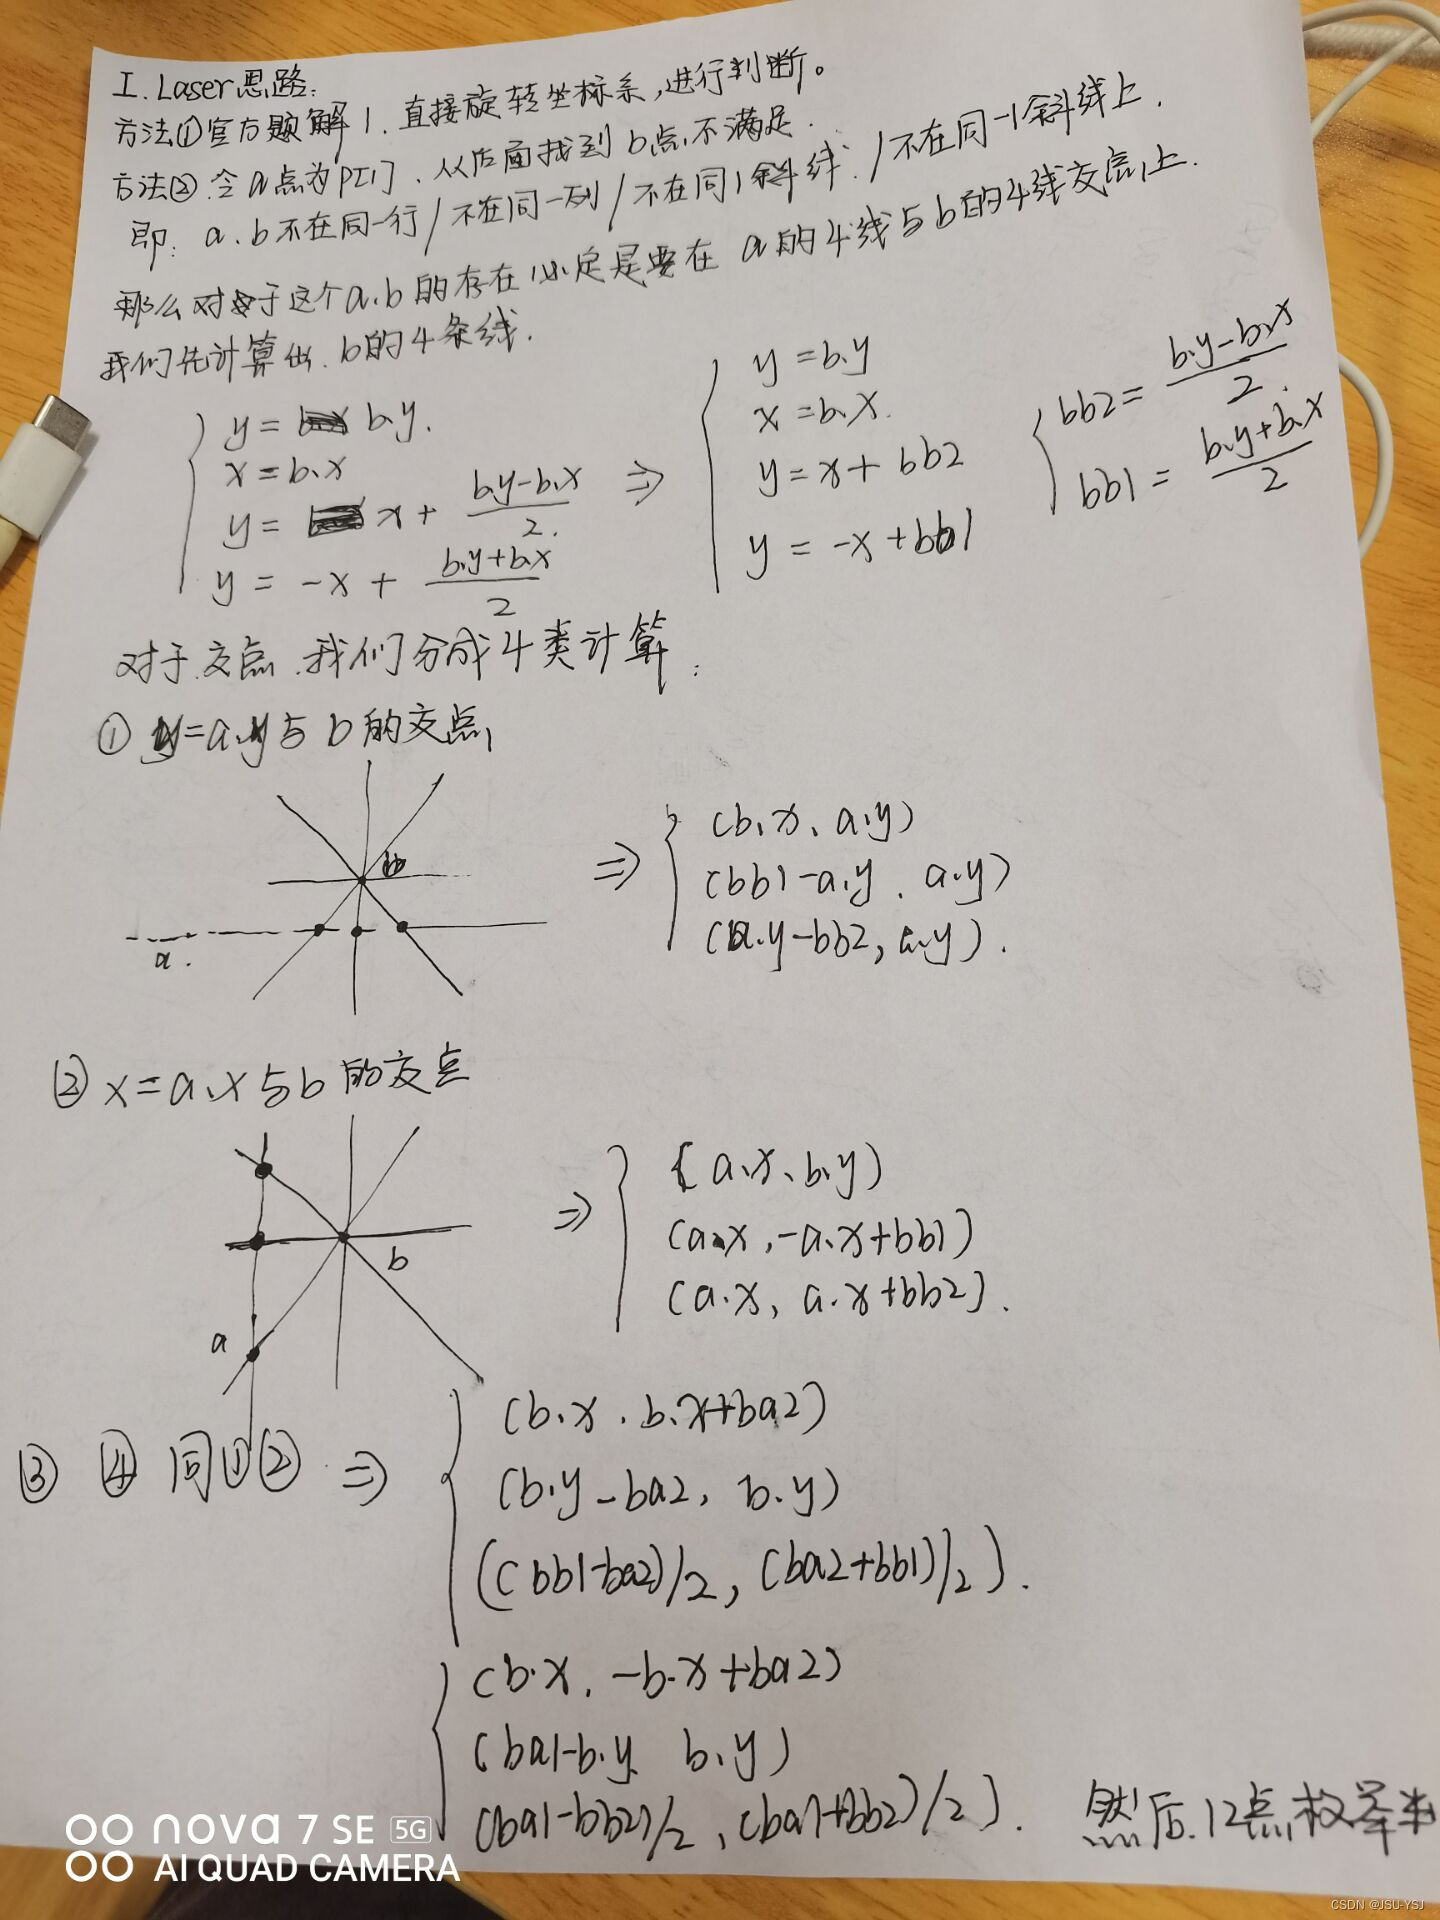 I. Laser思路:
方法①官方题解1.直接旋转坐标系,进行判断。
方法②.令a点为P[1].从后面找到b点,不满足.
即: a.b不在同一行/不在同一列/不在同1斜线./不在同一1斜线上.
那么对于这个a.b的存在必定是要在a的4线与b的4线交点上.
我们先计算出.b的4条线.
y = b.y.
x = b.x
y = x + (b.y-b.x)/2.
y = -x + (b.y+b.x)/2
⇒
y = b.y
x = b.x.
y = x + bb2
y = -x + bb1
bb2 = (b.y-b.x)/2.
bb1 = (b.y+b.x)/2
对于.交点.我们分成4类计算:
① y=a.y与b的交点,
b
a.
⇒
(b.x, a.y)
(bb1-a.y, a.y)
(a.y-bb2, a.y).
② x=a.x与b的交点
b
a
⇒
(a.x, b.y)
(a.x, -a.x+bb1)
(a.x, a.x+bb2).
③ ④ 同①② ⇒
(b.x, b.x+ba2)
(b.y-ba2, b.y)
((bb1-ba2)/2, (ba2+bb1)/2).
(b.x, -b.x+ba2)
(ba1-b.y, b.y)
(ba1-bb2)/2, (ba1+bb2)/2).
然后.12点枚举
nova 7 SE 5G
AI QUAD CAMERA
CSDN @JSU-YSJ